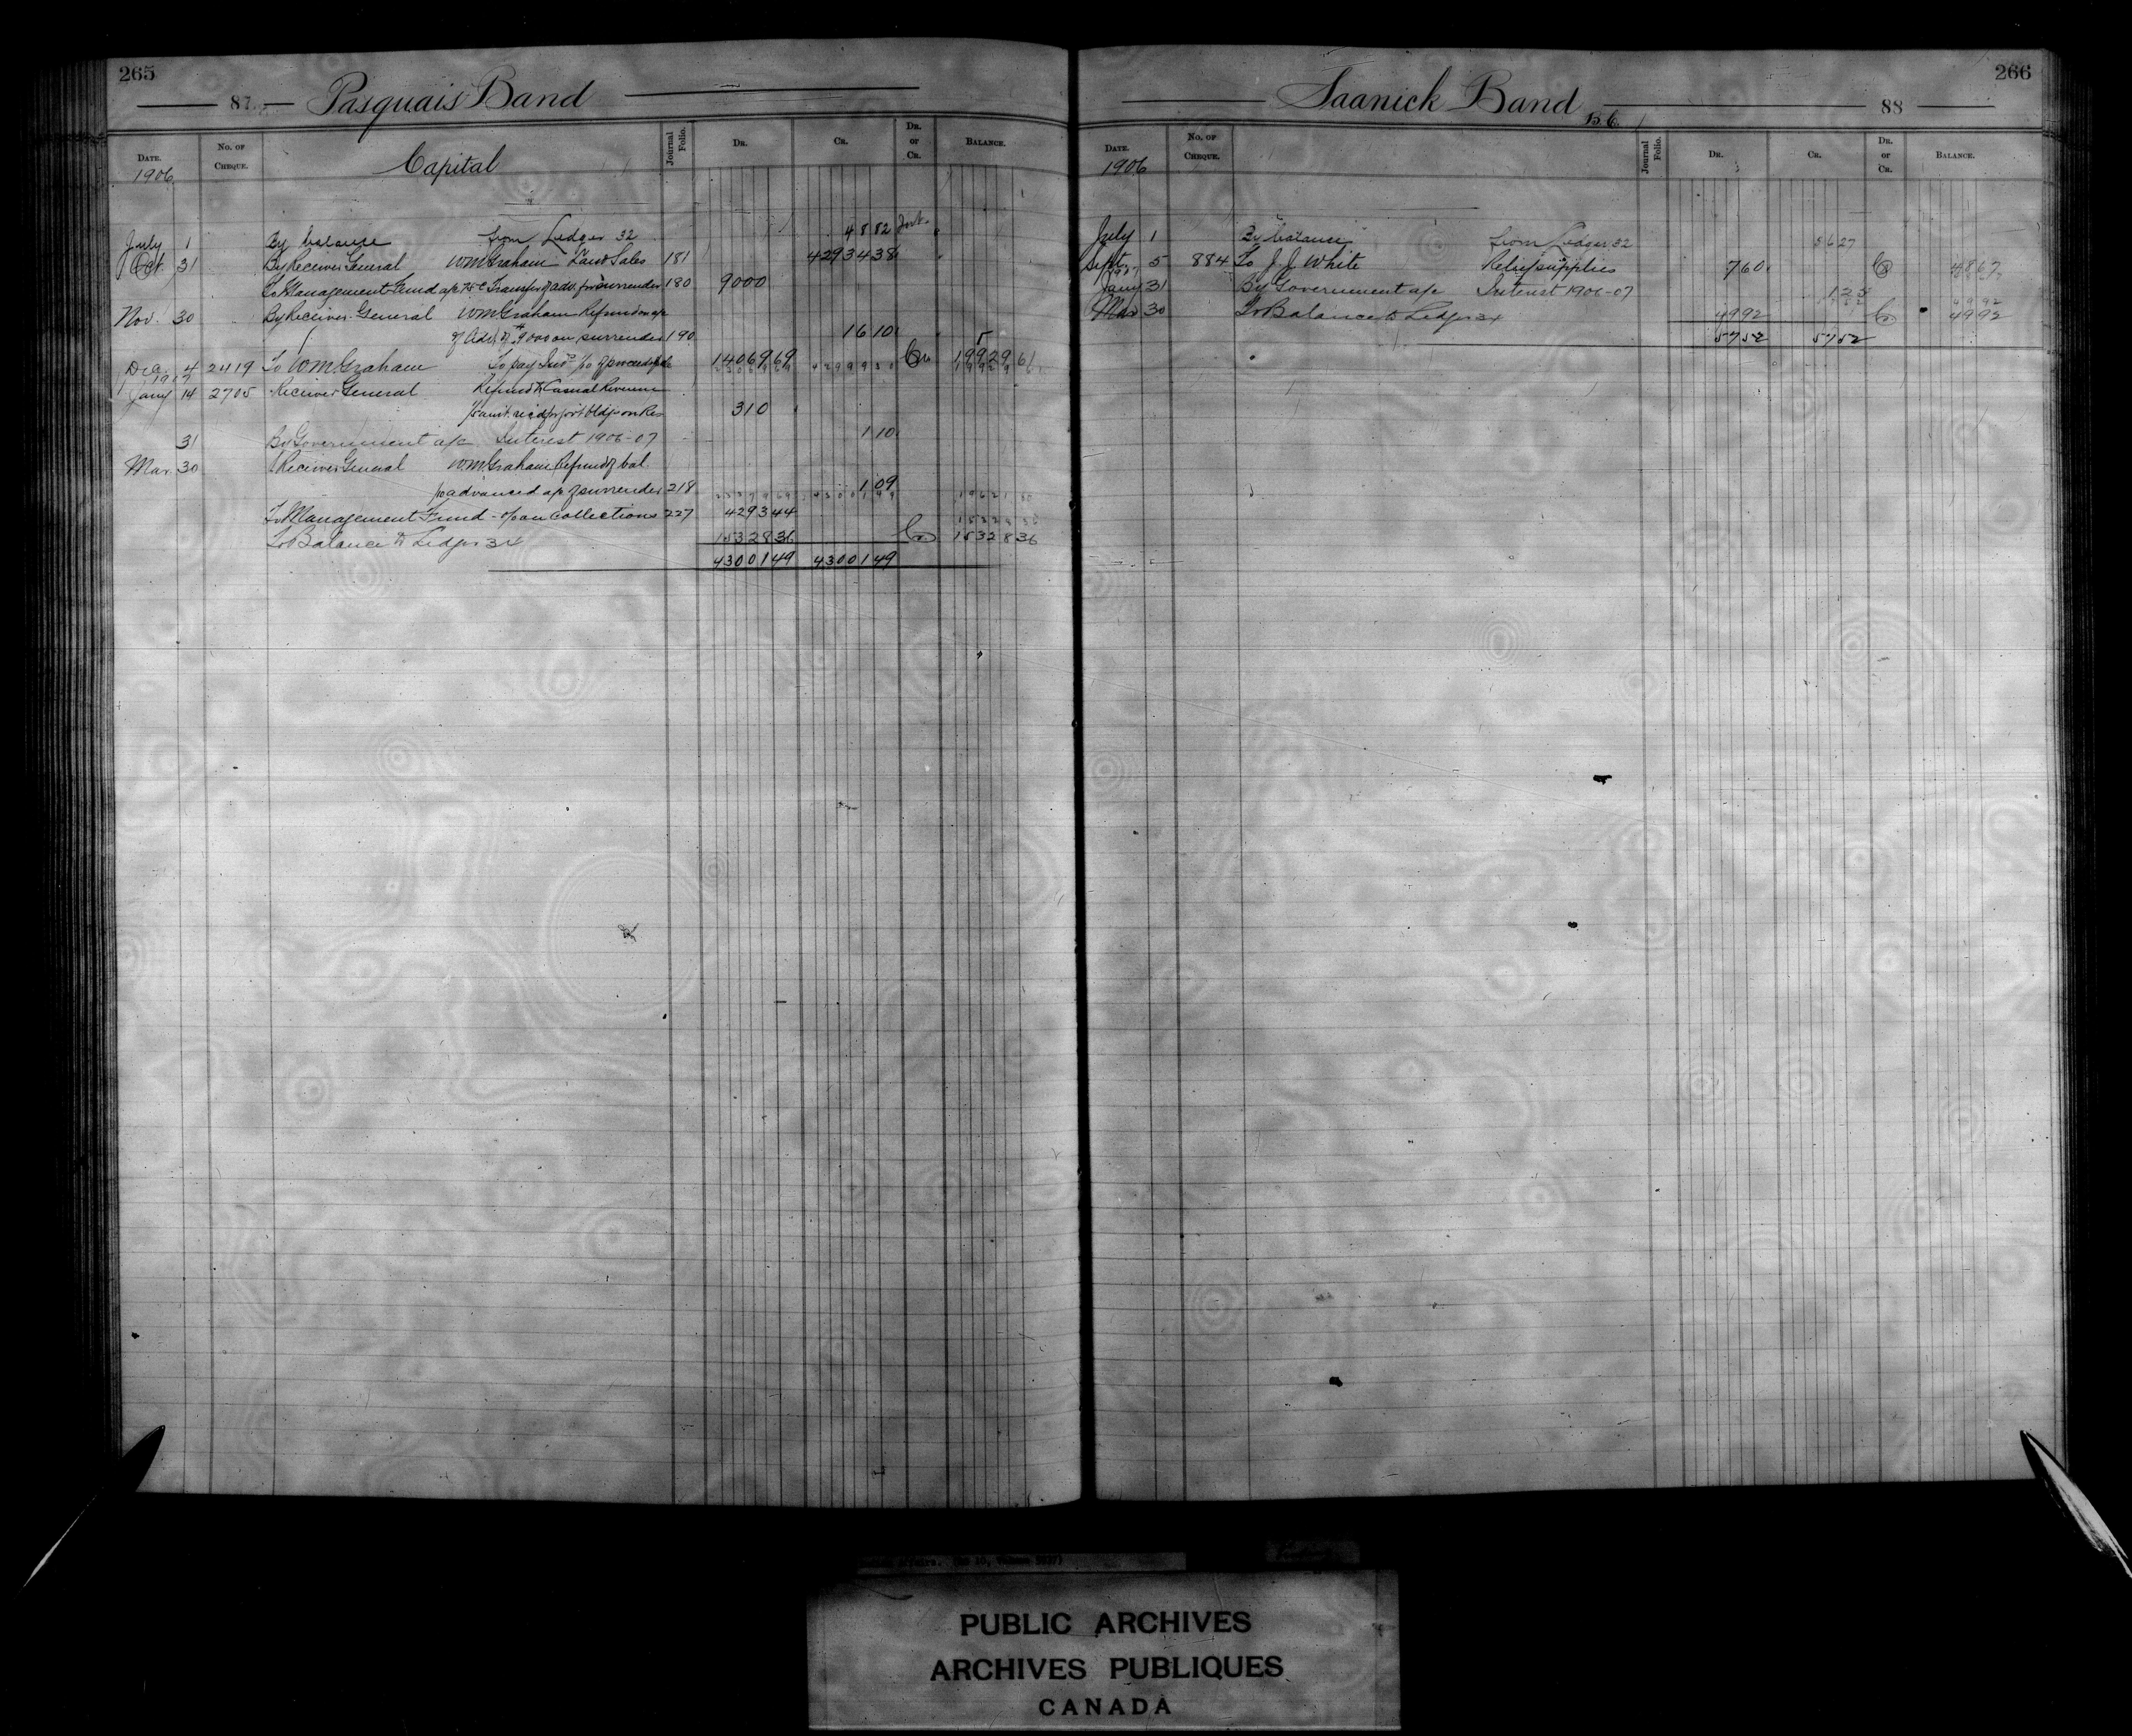 265
87 Pasquais Band
Date. No. of Cheque. Capital Journal Folio. Dr. Cr. Dr. or Cr. Balance.
1906
July 1 By balance from Ledger 32 48 82
Oct 31 By Receiver General WM Graham Land Sales 181 42934 38
To Management Fund a/c Transfer of adv. for surrender 180 90 00
Nov. 30 By Receiver General WM Graham Refund on a/c
of Adv. of 9000 on surrender 190 16 10
Dec. 4 2419 To WM Graham To pay 14069 69 Cr 19929 61
1907
Jany 14 2705 Receiver General Refund to Casual Revenue
3 10
31 By Government a/c Interest 1906-07 1 10
Mar. 30 Receiver General WM Graham Refund of bal.
advanced a/c of surrender 218 1 09
To Management Fund - % on collections 227 4293 44
To Balance to Ledger 34 15328 36 Cr 15328 36
43001 49 43001 49
266
Saanick Band B.C. 88
Date. No. of Cheque. Journal Folio. Dr. Cr. Dr. or Cr. Balance.
1906
July 1 By balance from Ledger 32 56 27
Sept. 5 884 To J J White Relief supplies 7 60 Cr 48 67
1907
Jany 31 By Government a/c Interest 1906-07 1 25 49 92
Mar 30 To Balance to Ledger 34 49 92 Cr 49 92
57 52 57 52
PUBLIC ARCHIVES
ARCHIVES PUBLIQUES
CANADA